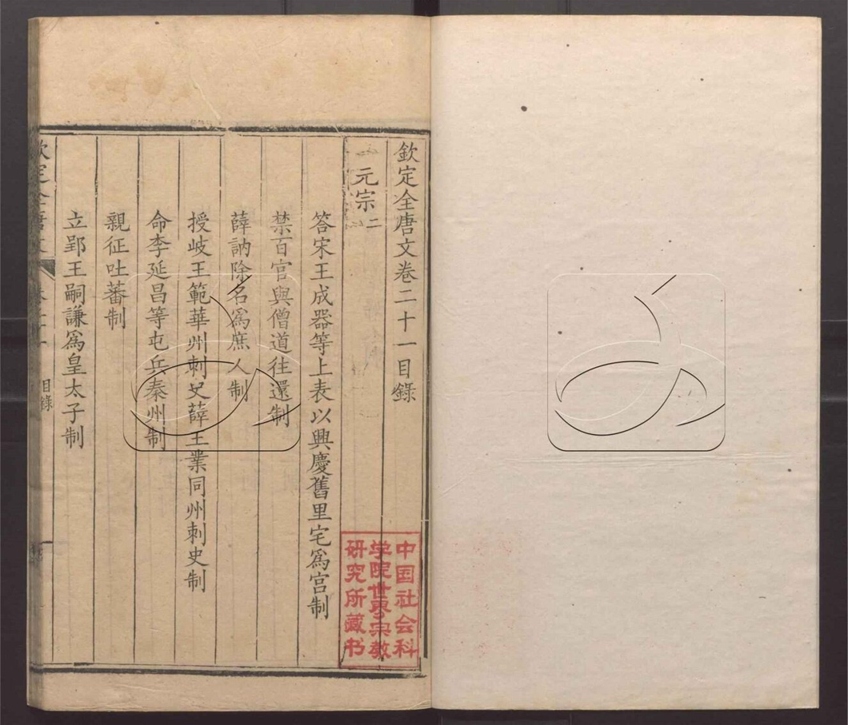 欽定全唐文卷二十一目錄
元宗二
答宋王成器等上表以興慶舊里宅爲宮制
禁百官與僧道往還制
薛訥除名爲庶人制
授岐王範華州刺史薛王業同州刺史制
命李延昌等屯兵秦州制
親征吐蕃制
立郢王嗣謙爲皇太子制
欽定全唐文
目錄
中国社会科
学院世界宗教
研究所藏书